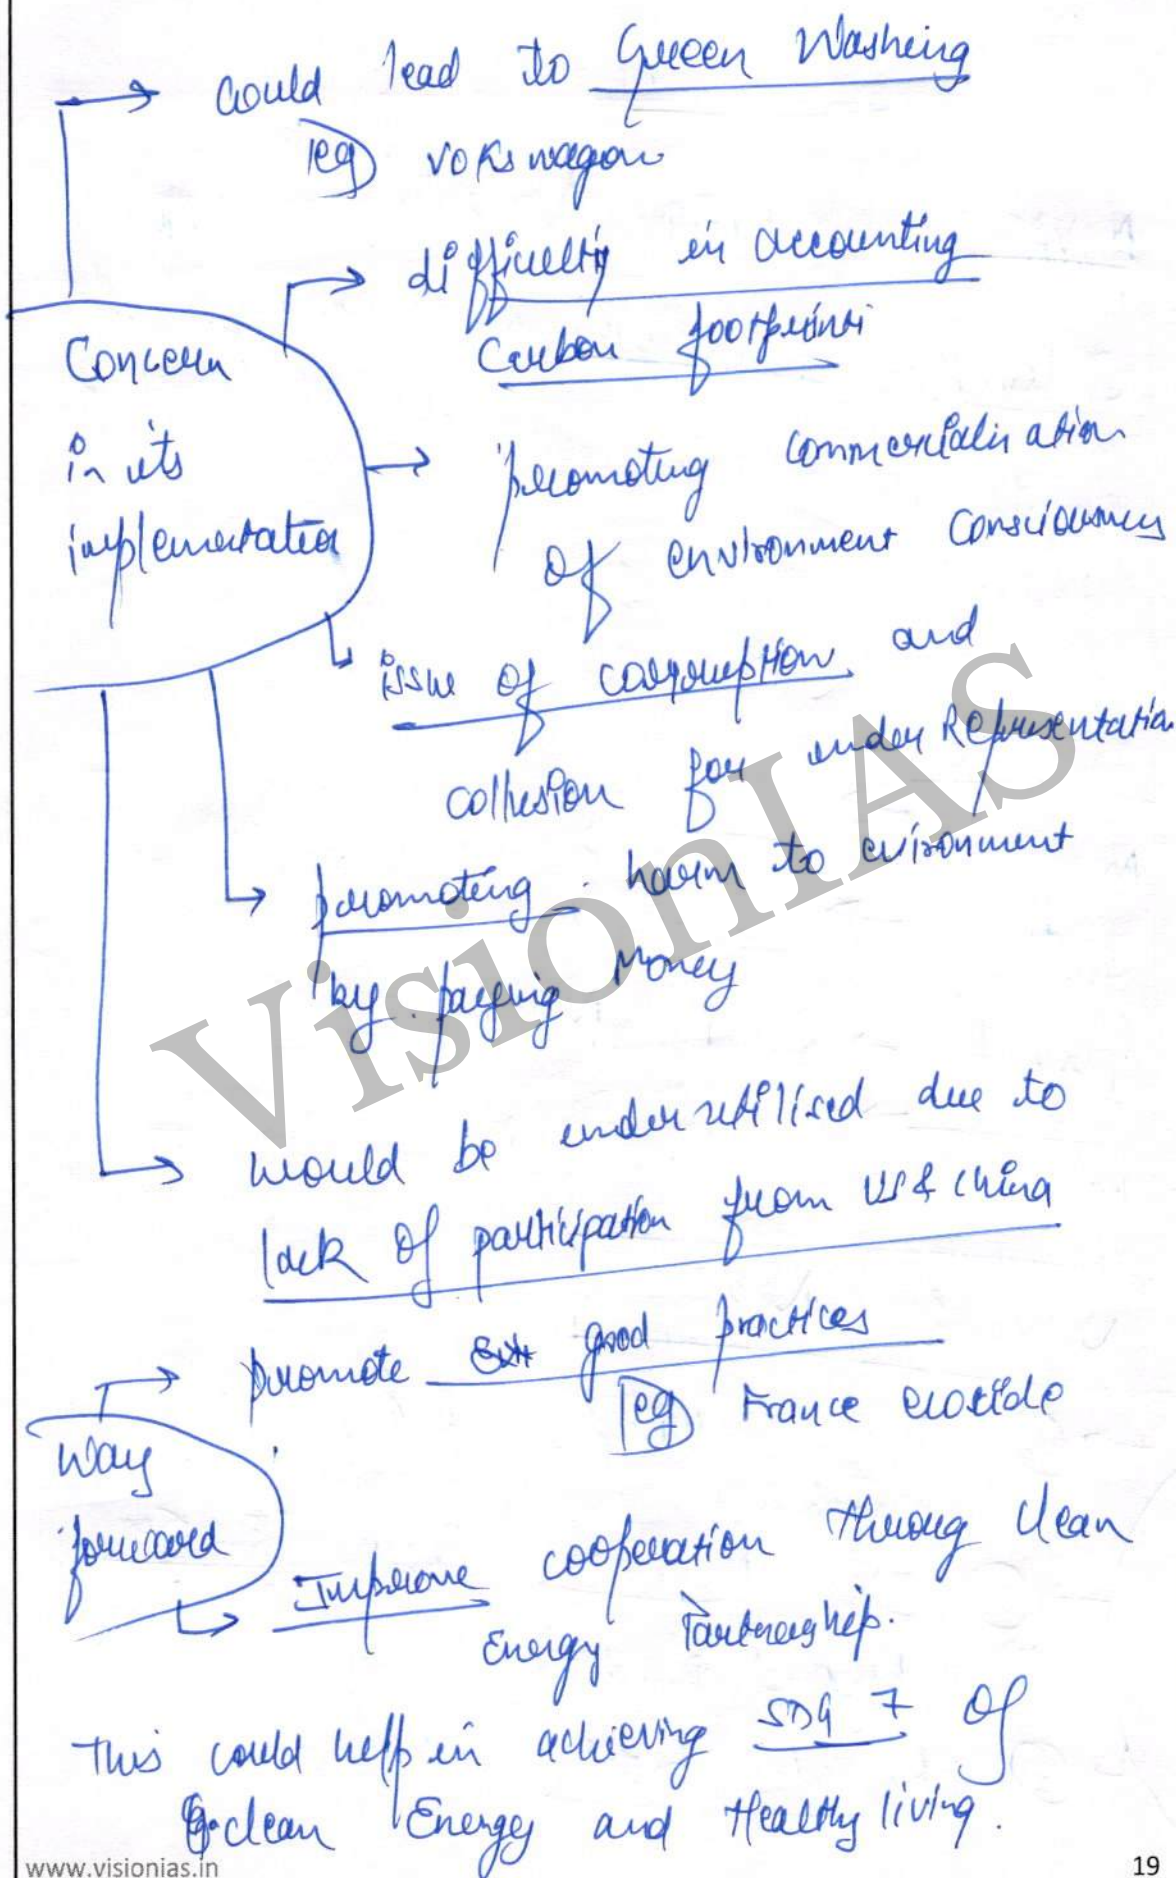 could lead to Green Washing
eg Vokswagon
difficulty in accounting
Carbon footprint
Concern
in its
implementation
promoting commercialisation
of environment consciousness
issue of corruption and
collusion for under Representation
promoting harm to evironment
by paying money
would be underutilised due to
lack of participation from US & China
promote good practices
eg France
Way
forward
Improve cooperation throug clean
Energy Partnership.
This could help in achieving SDG 7 of
clean Energy and Healthy living.
VisionIAS
www.visionias.in
19